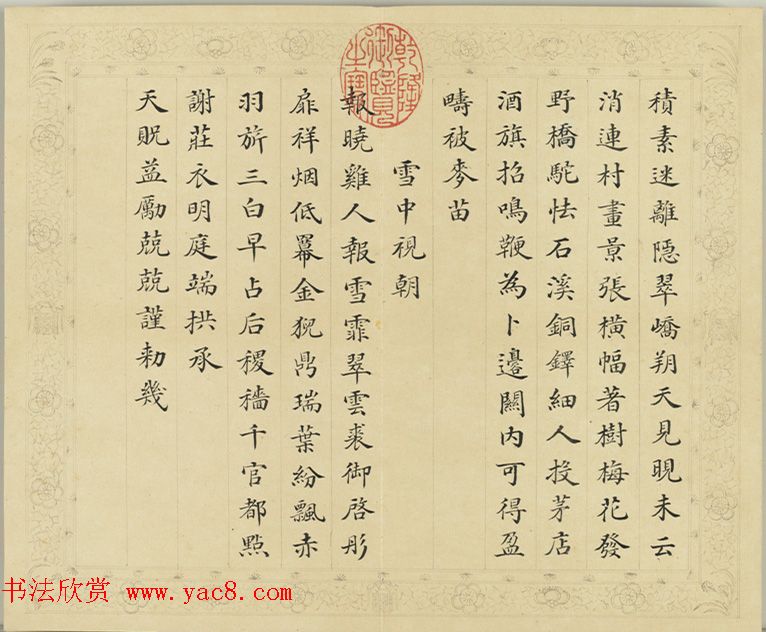 積素迷離隱翠嶠朔天見晛未云
消連村畫景張橫幅著樹梅花發
野橋駝怯石溪銅鐸細人投茅店
酒旗招鳴鞭為卜邊關內可得盈
疇被麥苗
雪中視朝
報曉雞人報雪霏翠雲裘御啓彤
扉祥烟低羃金猊鼎瑞葉紛飄赤
羽旂三白早占后稷穡千官都點
謝莊衣明庭端拱承
天貺益勵兢兢謹勅幾
乾隆御覽之寶
书法欣赏 www.yac8.com